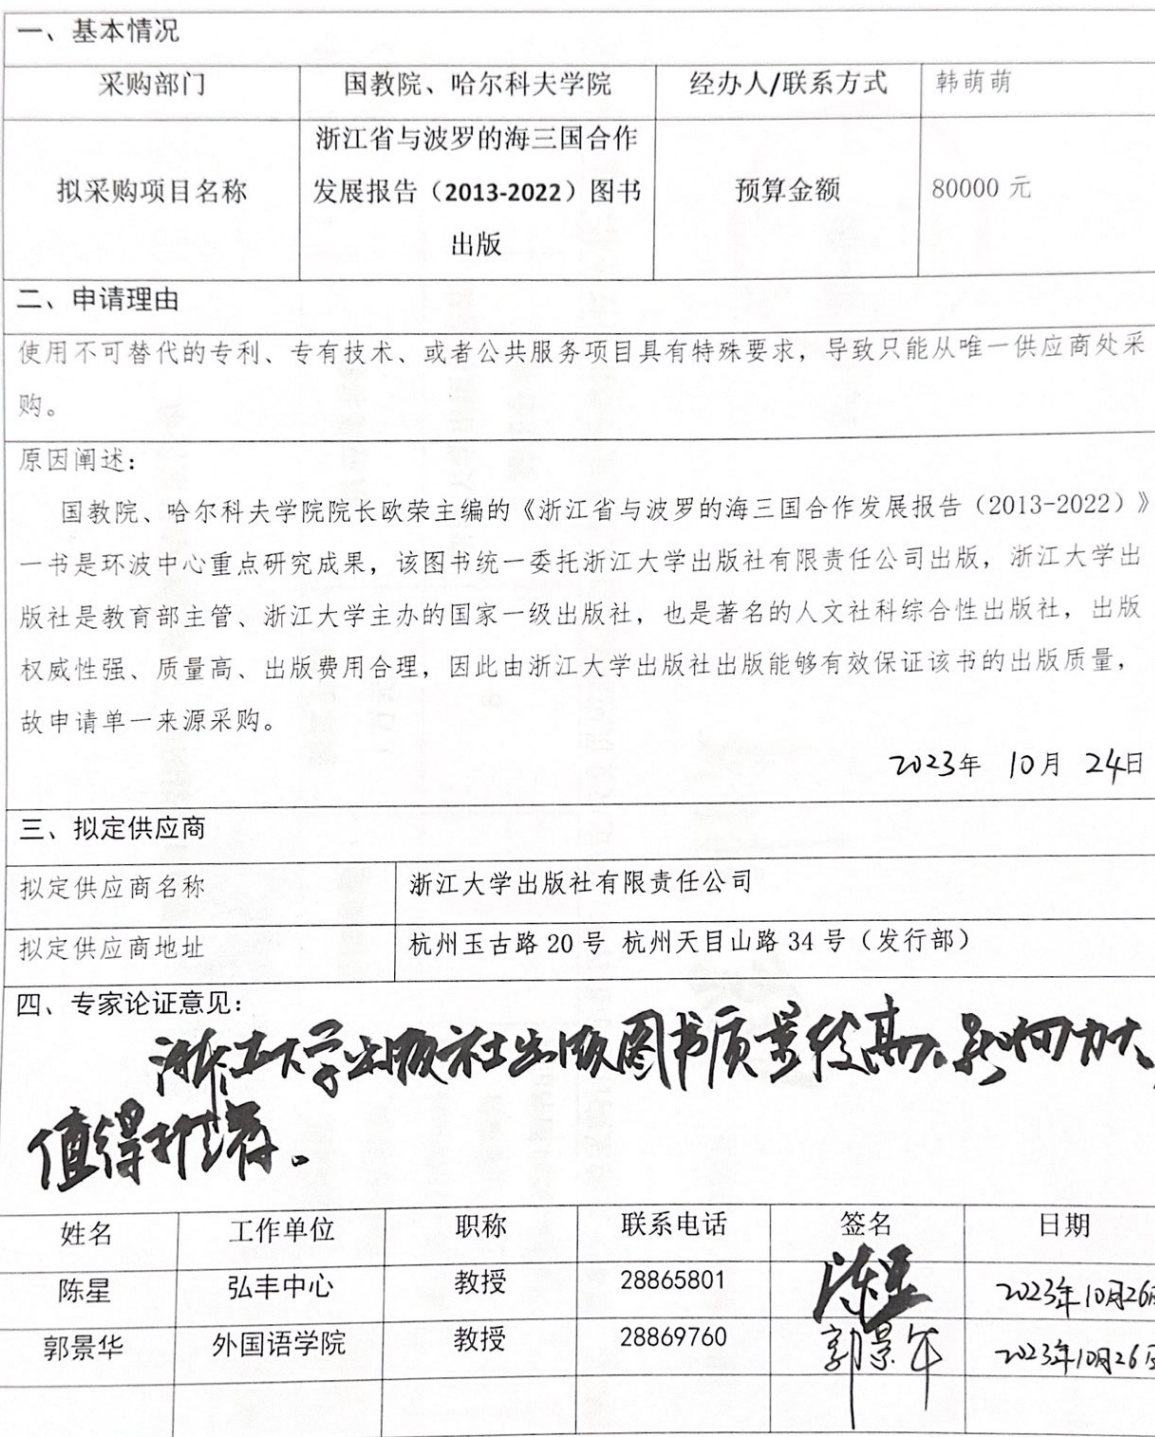 一、基本情况
采购部门 国教院、哈尔科夫学院 经办人/联系方式 韩萌萌
拟采购项目名称 浙江省与波罗的海三国合作
发展报告（2013-2022）图书
出版 预算金额 80000 元
二、申请理由
使用不可替代的专利、专有技术、或者公共服务项目具有特殊要求，导致只能从唯一供应商处采
购。
原因阐述：
国教院、哈尔科夫学院院长欧荣主编的《浙江省与波罗的海三国合作发展报告（2013-2022）》
一书是环波中心重点研究成果，该图书统一委托浙江大学出版社有限责任公司出版，浙江大学出
版社是教育部主管、浙江大学主办的国家一级出版社，也是著名的人文社科综合性出版社，出版
权威性强、质量高、出版费用合理，因此由浙江大学出版社出版能够有效保证该书的出版质量，
故申请单一来源采购。
2023年 10月 24日
三、拟定供应商
拟定供应商名称 浙江大学出版社有限责任公司
拟定供应商地址 杭州玉古路 20 号 杭州天目山路 34 号（发行部）
四、专家论证意见：
浙江大学出版社出版图书质量优异、影响力大，
值得推荐。
姓名 工作单位 职称 联系电话 签名 日期
陈星 弘丰中心 教授 28865801 陈星 2023年10月26日
郭景华 外国语学院 教授 28869760 郭景华 2023年10月26日